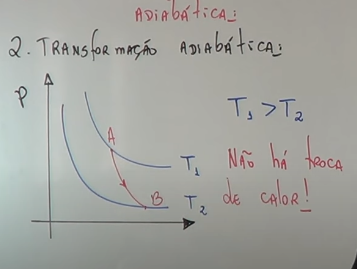 ADIABÁTICA:
2. TRANSFORMAÇÃO ADIABÁTICA:
P
A
B
T₁
T₂
T₁ > T₂
NÃO HÁ TROCA
DE CALOR!